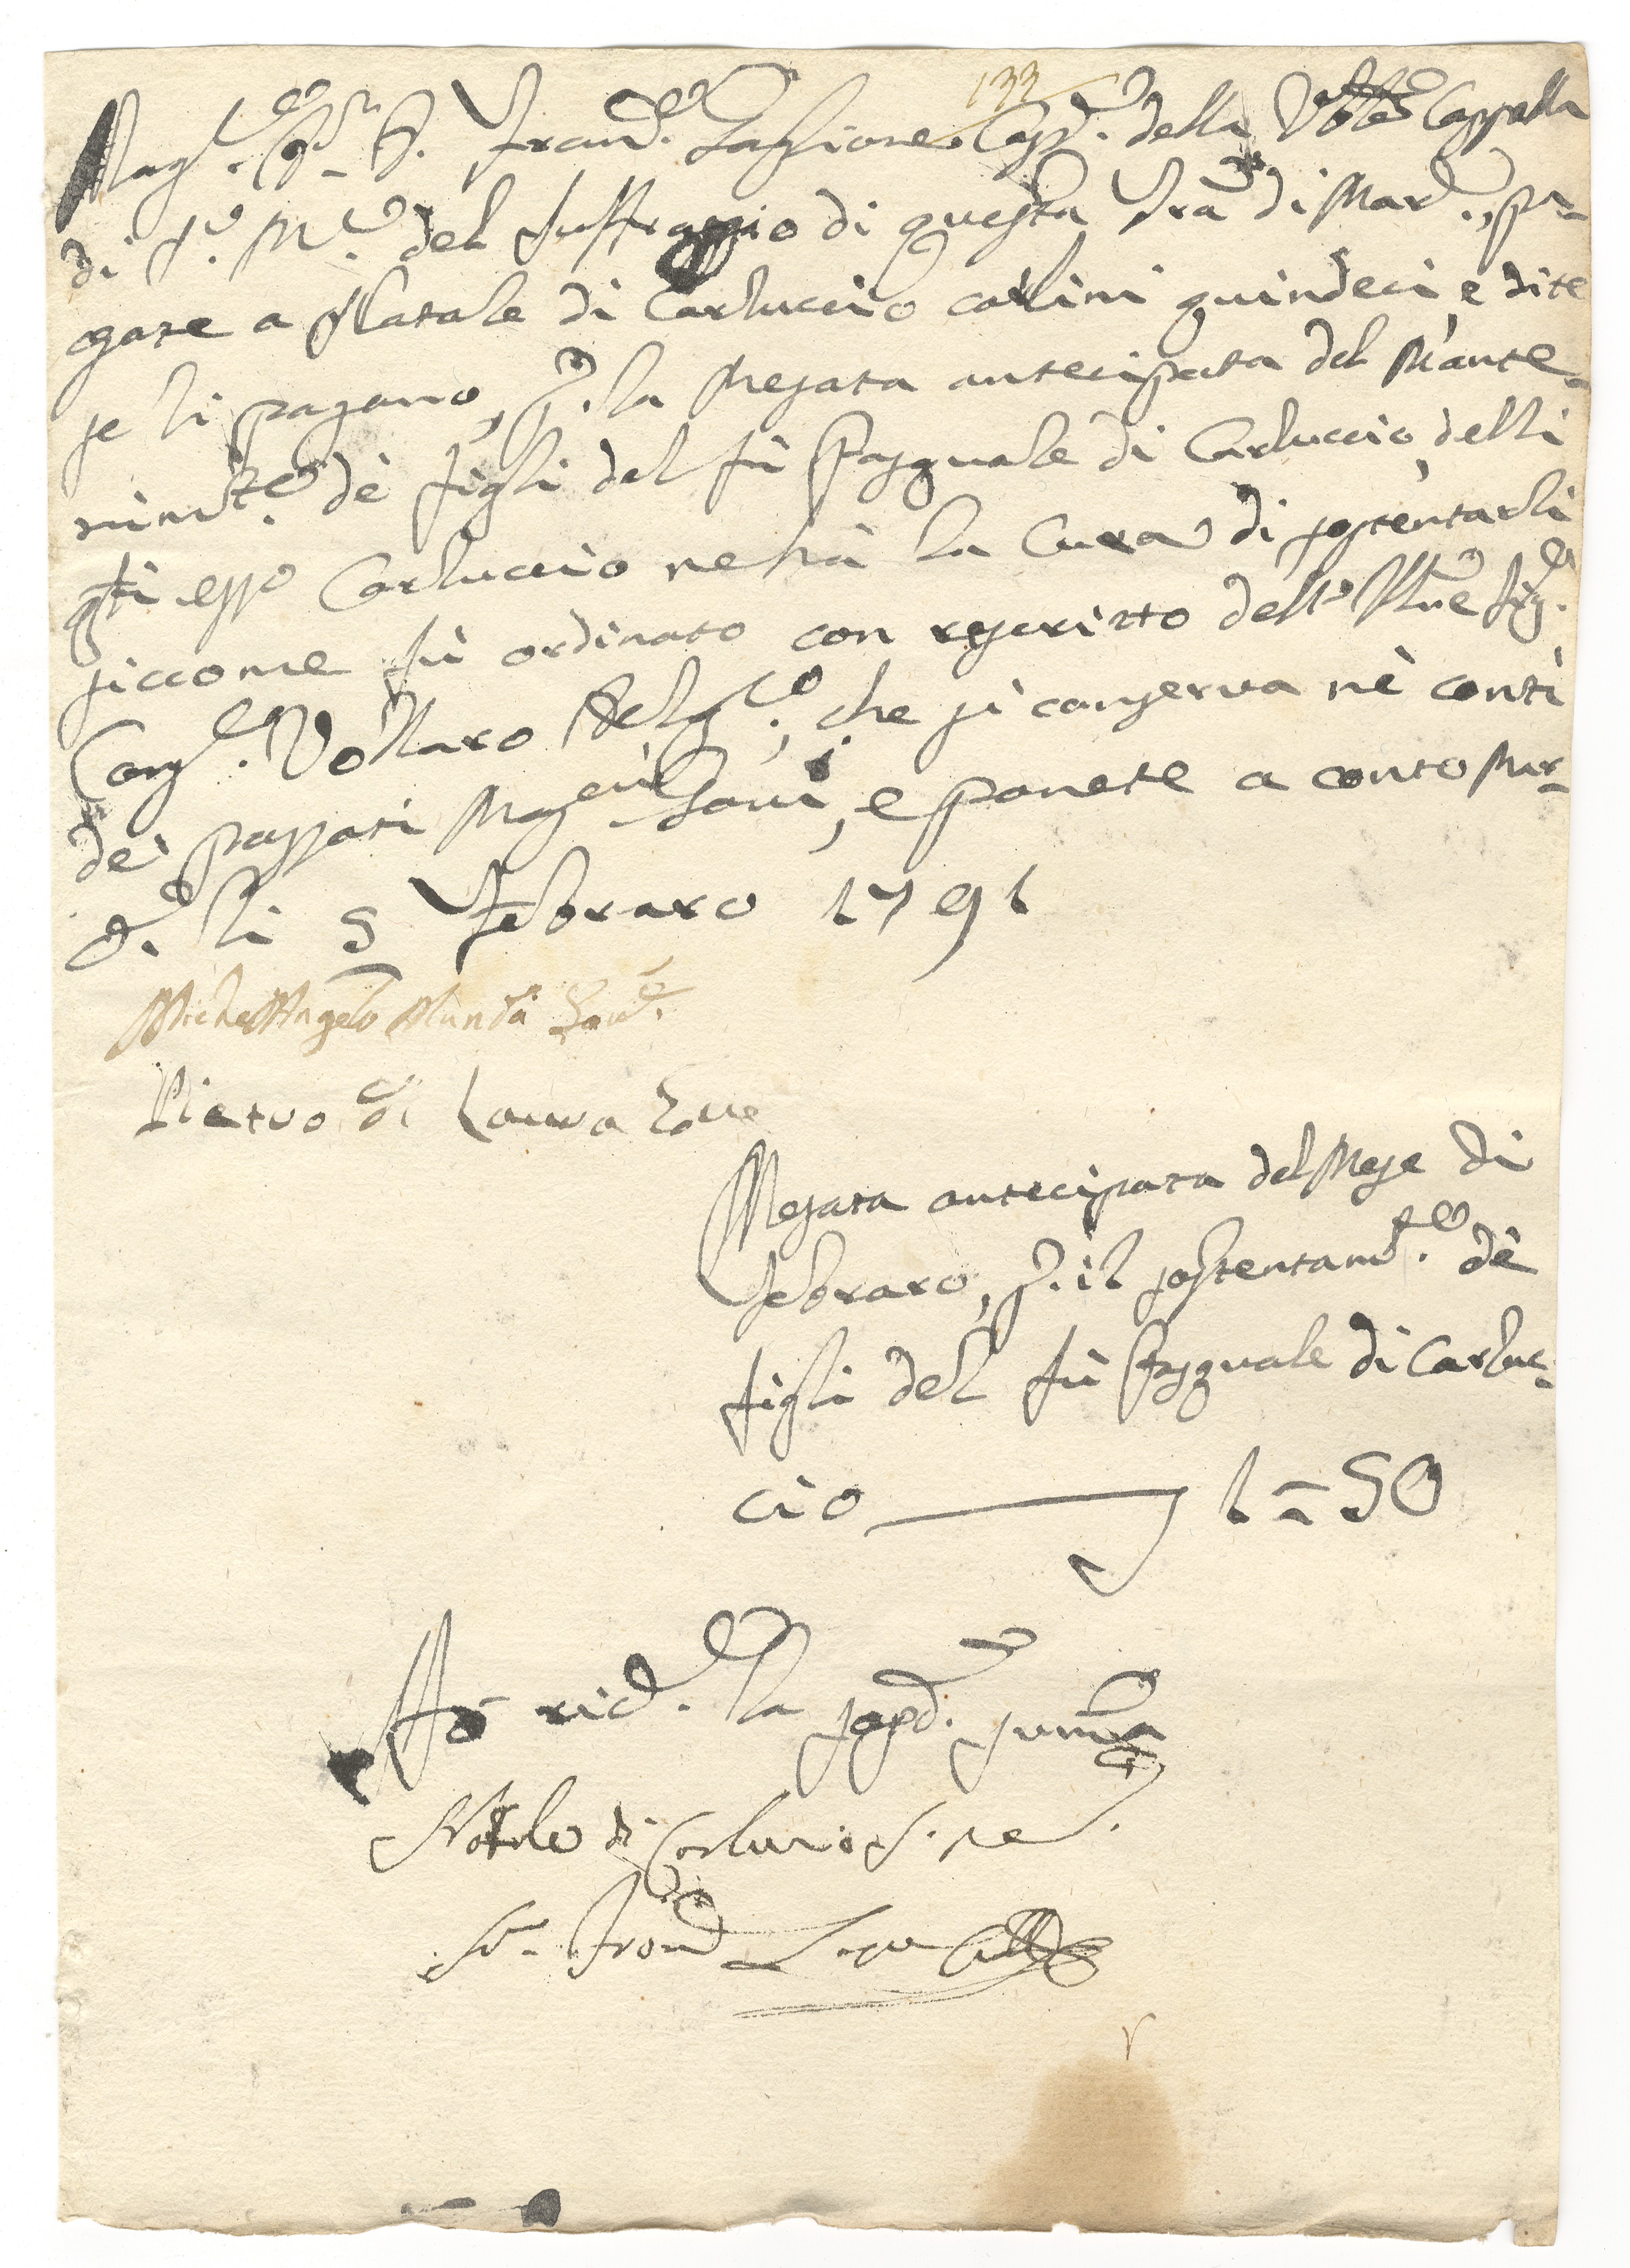 133
Mag.co Sr. D. Franc.o Lassione Cass.re della Ve͞n͞le Cappella
di S.a M.a del Suffraggio di questa T͞r͞a di Mar.e, pa-
gate a Natale di Carluccio carlini quindeci, e dite
se li pagano, p. la Mesata antecipata del Mante-
nim.to dè figli del fù Pasquale di Carluccio, delli
q͞l͞i esso Carluccio ne hà la Cura di sostentarli
siccome fù ordinato con rescritto dell' Ill͞m͞e Sig.e
Consig.e Vollaro Deleg.to, che si conserva nè conti
dei passati Mag.ci Raz.li, e ponete a conto Mar-
. li 5 Febraro 1791
MichelAngelo
Pietro di Laura
Mesata antecipata del Mese di
Febraro, p. il sostentam.to dè
figli del fù Pasquale di Carluc-
cio 1=50
Hò ric.o la sop.d. summa
Natale di Carluccio
Franc.o